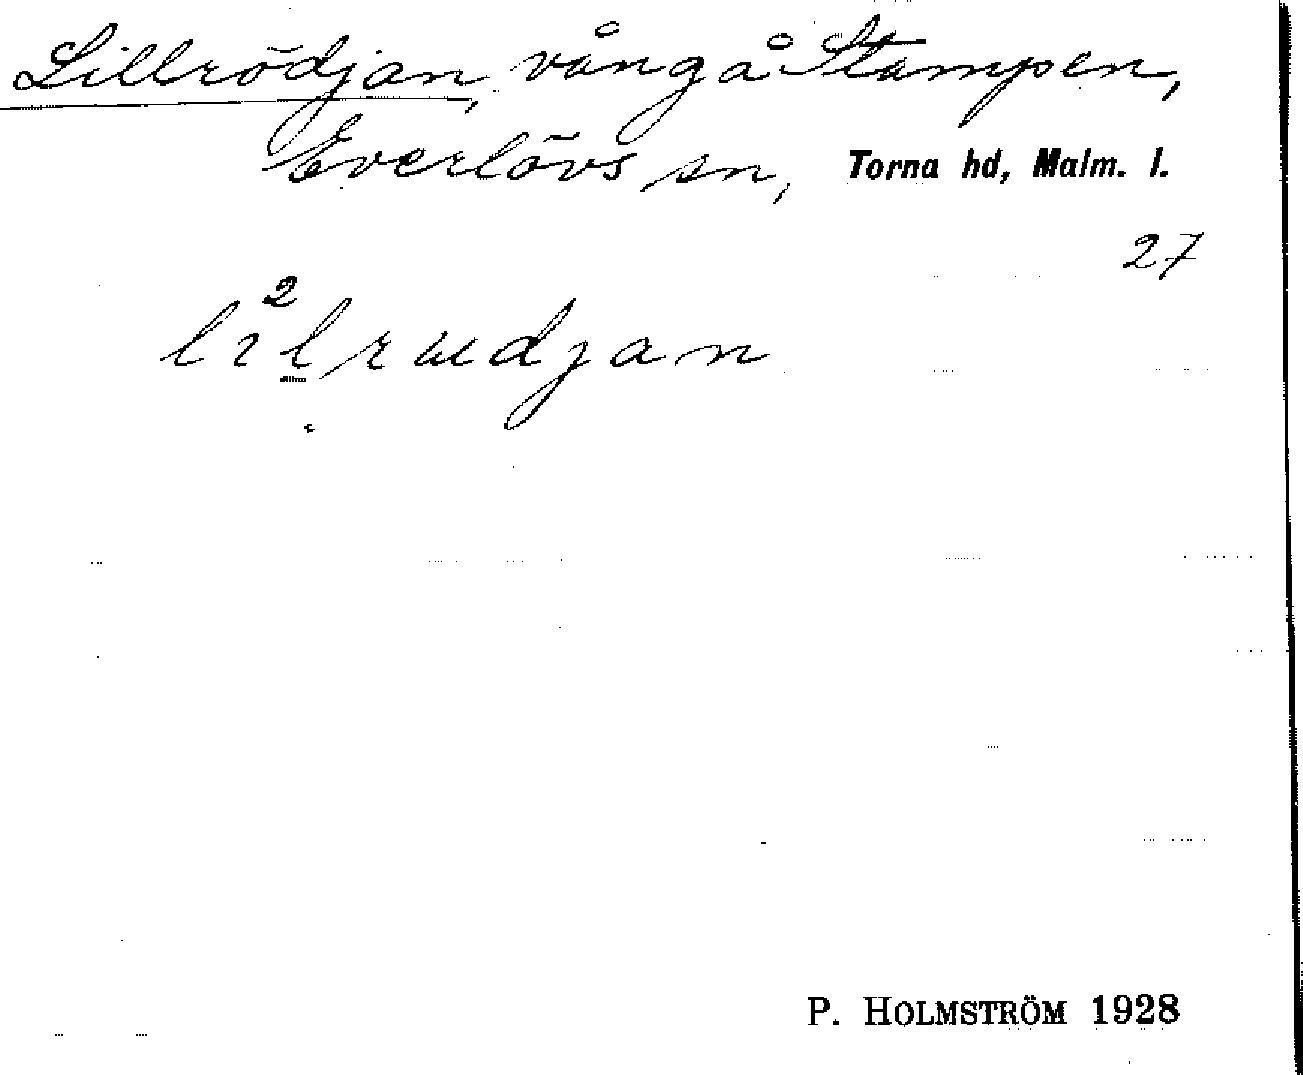 Lillrödjan, vång å Stampen,
Everlövs sn, Torna hd, Malm. l.
27
li²lrudjan
P. HOLMSTRÖM 1928